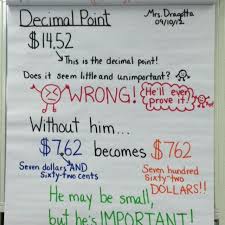 Decimal Point
Mrs. Dragotta
04/10/12
$14.52
This is the decimal point!
Does it seem little and unimportant?
WRONG! He'll even prove it!
Without him...
$7.62 becomes $762
Seven dollars AND Sixty-two cents
Seven hundred Sixty-two DOLLARS!!
He may be small,
but he's IMPORTANT!